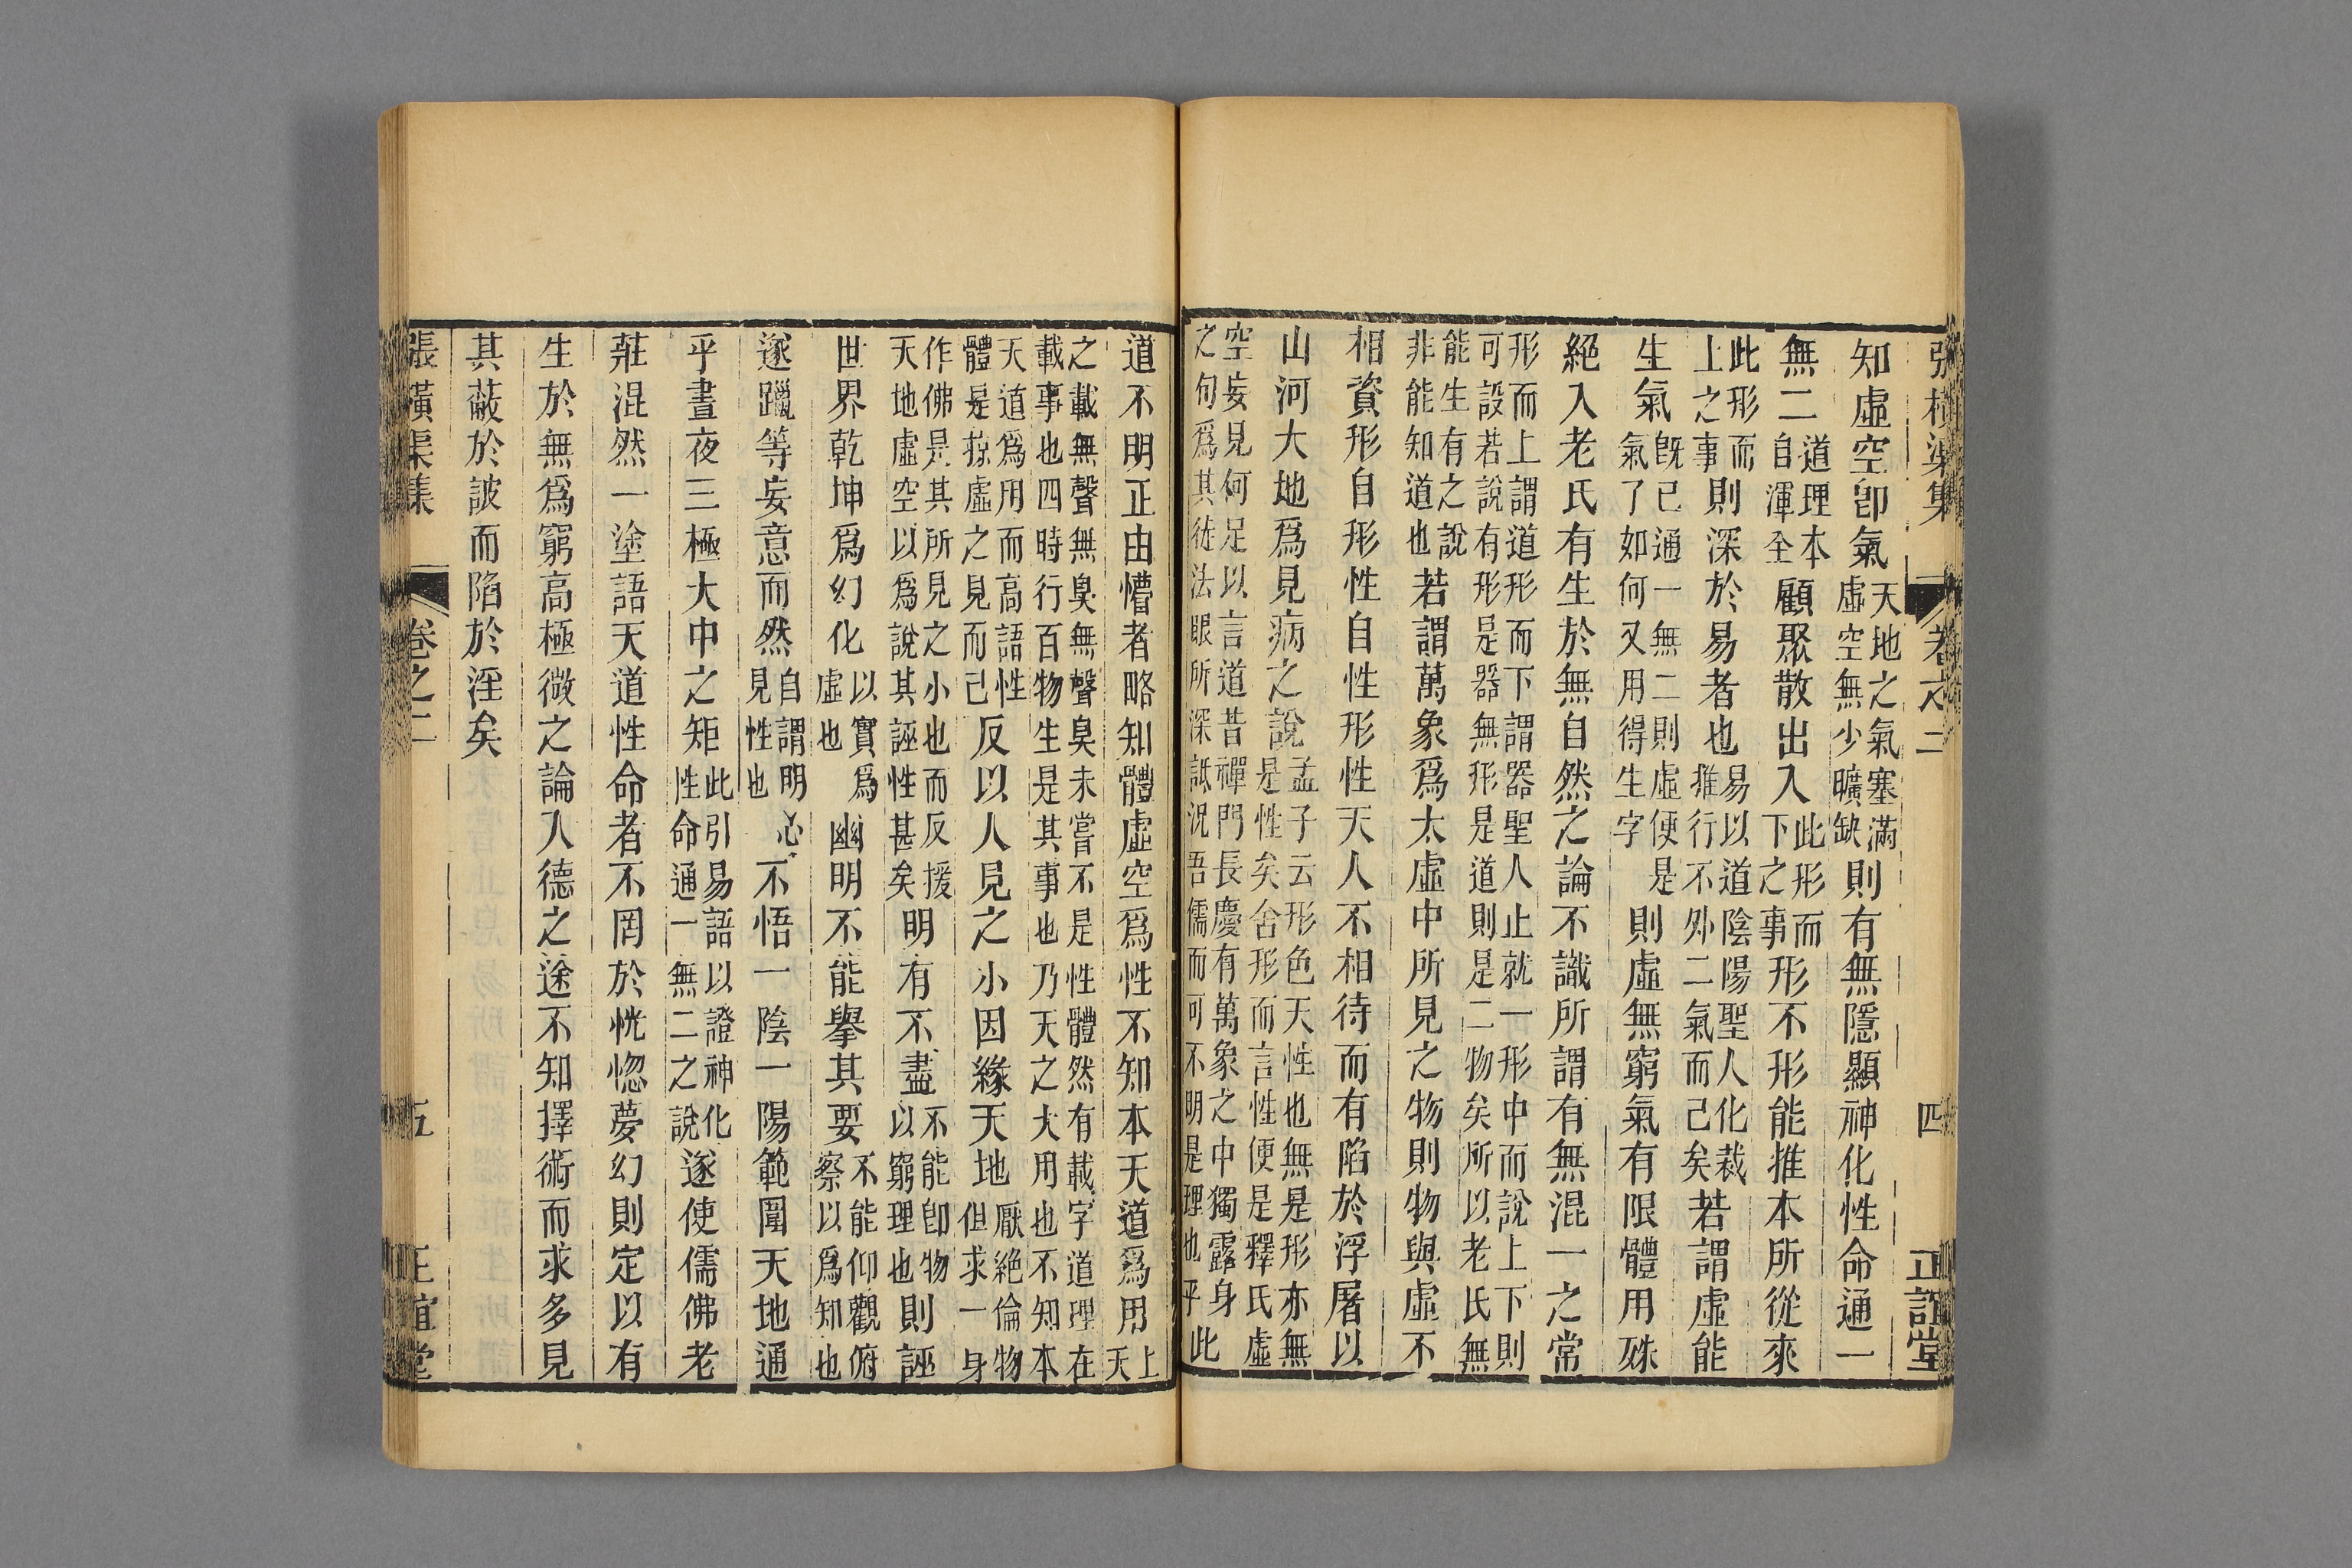 張橫渠集　卷之二　四　正誼堂
知虛空卽氣天地之氣塞滿虛空無少曠缺則有無隱顯神化性命通一
無二道理本自渾全顧聚散出入此形而下之事形不形能推本所從來
此形而上之事則深於易者也易以道陰陽聖人化裁推行不外二氣而已矣若謂虛能
生氣旣已通一無二則虛便是氣了如何又用得生字則虛無窮氣有限體用殊
絕入老氏有生於無自然之論不識所謂有無混一之常
形而上謂道形而下謂器聖人止就一形中而說上下則可設若說有形是器無形是道則是二物矣所以老氏無
能生有之說非能知道也若謂萬象爲太虛中所見之物則物與虛不
相資形自形性自性形性天人不相待而有陷於浮屠以
山河大地爲見病之說孟子云形色天性也無是形亦無是性矣舍形而言性便是釋氏虛
空妄見何足以言道昔禪門長慶有萬象之中獨露身之句爲其徒法眼所深詆況吾儒而可不明是理也乎此
道不明正由懵者略知體虛空爲性不知本天道爲用上天
之載無聲無臭無聲臭未嘗不是性體然有載字道理在載事也四時行百物生是其事也乃天之大用也不知本
天道爲用而高語性體是掠虛之見而已反以人見之小因緣天地厭絕倫物但求一身
作佛是其所見之小也而反援天地虛空以爲說其誣性甚矣明有不盡不能卽物以窮理也則誣
世界乾坤爲幻化以實爲虛也幽明不能舉其要不能仰觀俯察以爲知也
遂躐等妄意而然自謂明心見性也不悟一陰一陽範圍天地通
乎晝夜三極大中之矩此引易語以證神化性命通一無二之說遂使儒佛老
莊混然一塗語天道性命者不罔於恍惚夢幻則定以有
生於無爲窮高極微之論入德之途不知擇術而求多見
其蔽於詖而陷於淫矣
張橫渠集　卷之二　五　正誼堂